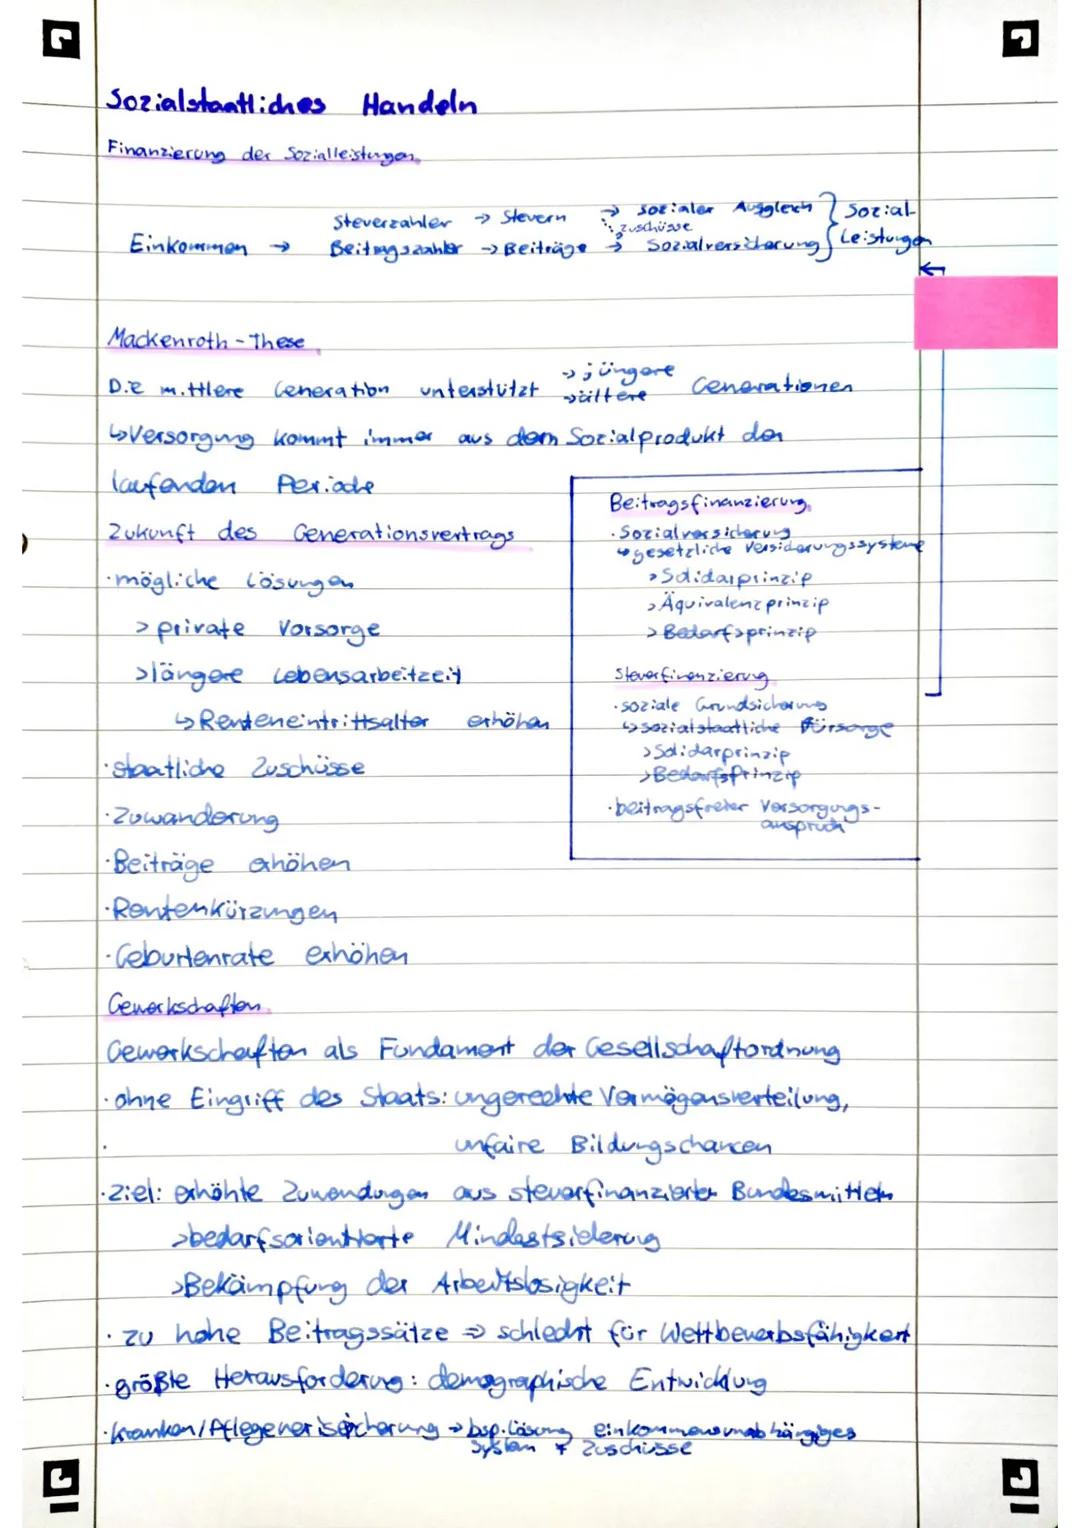 Sozialstaatliches Handeln
Finanzierung der Sozialleistungen
Steuerzahler → Steuern → sozialer Ausgleich } Sozial-
Zuschüsse
Einkommen → Beitragszahler → Beiträge → Sozialversicherung } Leistungen
Mackenroth-These
Die mittlere Generation unterstützt → jüngere Generationen
→ ältere
↳ Versorgung kommt immer aus dem Sozialprodukt der
laufenden Periode
Zukunft des Generationsvertrags
· mögliche Lösungen
> private Vorsorge
> längere Lebensarbeitzeit
↳ Renteneintrittsalter erhöhen
· staatliche Zuschüsse
· Zuwanderung
· Beiträge erhöhen
· Rentenkürzungen
· Geburtenrate erhöhen
Beitragsfinanzierung
· Sozialversicherung
↳ gesetzliche Versicherungssysteme
> Solidarprinzip
> Äquivalenzprinzip
> Bedarfsprinzip
Steuerfinanzierung
· soziale Grundsicherung
↳ sozialstaatliche Fürsorge
> Solidarprinzip
> Bedarfsprinzip
· beitragsfreier Versorgungs-
anspruch
Gewerkschaften
Gewerkschaften als Fundament der Gesellschaftordnung
· ohne Eingriff des Staats: ungerechte Vermögensverteilung,
unfaire Bildungschancen
· Ziel: erhöhte Zuwendungen aus steuerfinanzierter Bundesmitteln
> bedarfsorientierte Mindestsicherung
> Bekämpfung der Arbeitslosigkeit
· zu hohe Beitragssätze ⇒ schlecht für Wettbewerbsfähigkeit
· größte Herausforderung: demographische Entwicklung
· Kranken/Pflegeversicherung → bsp. Lösung einkommensunabhängiges
System + Zuschüsse